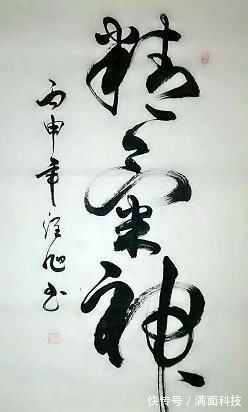 精氣神
丙申年旭书
快传号／满面科技